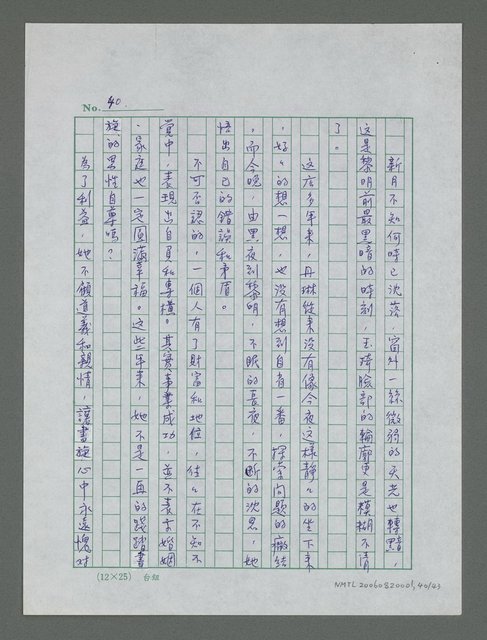 No. 40
新月不知何時已沈落，窗外一絲微弱的天光也轉黯，
這是黎明前最黑暗的時刻，玉琦臉部的輪廓更是模糊不清
了。
這麼多年來，丹琳從來沒有像今夜這樣靜々的坐下來
，好々的想一想，也沒有想到自省一番，探究問題的癥結
，而今晚，由黑夜到黎明，不眠的長夜，不斷的沈思，她
悟出自己的錯誤和矛盾。
不可否認的，一個人有了財富和地位，往々在不知不
覺中，表現出自負和專橫。其實事業成功，並不表示婚姻
、家庭也一定圓滿幸福。這些年來，她不是一直的踐踏書
旋的男性自尊嗎？
為了利益，她不顧道義和親情，讓書旋心中永遠愧對
(12×25) 台組
NMTL20060820001, 40/43